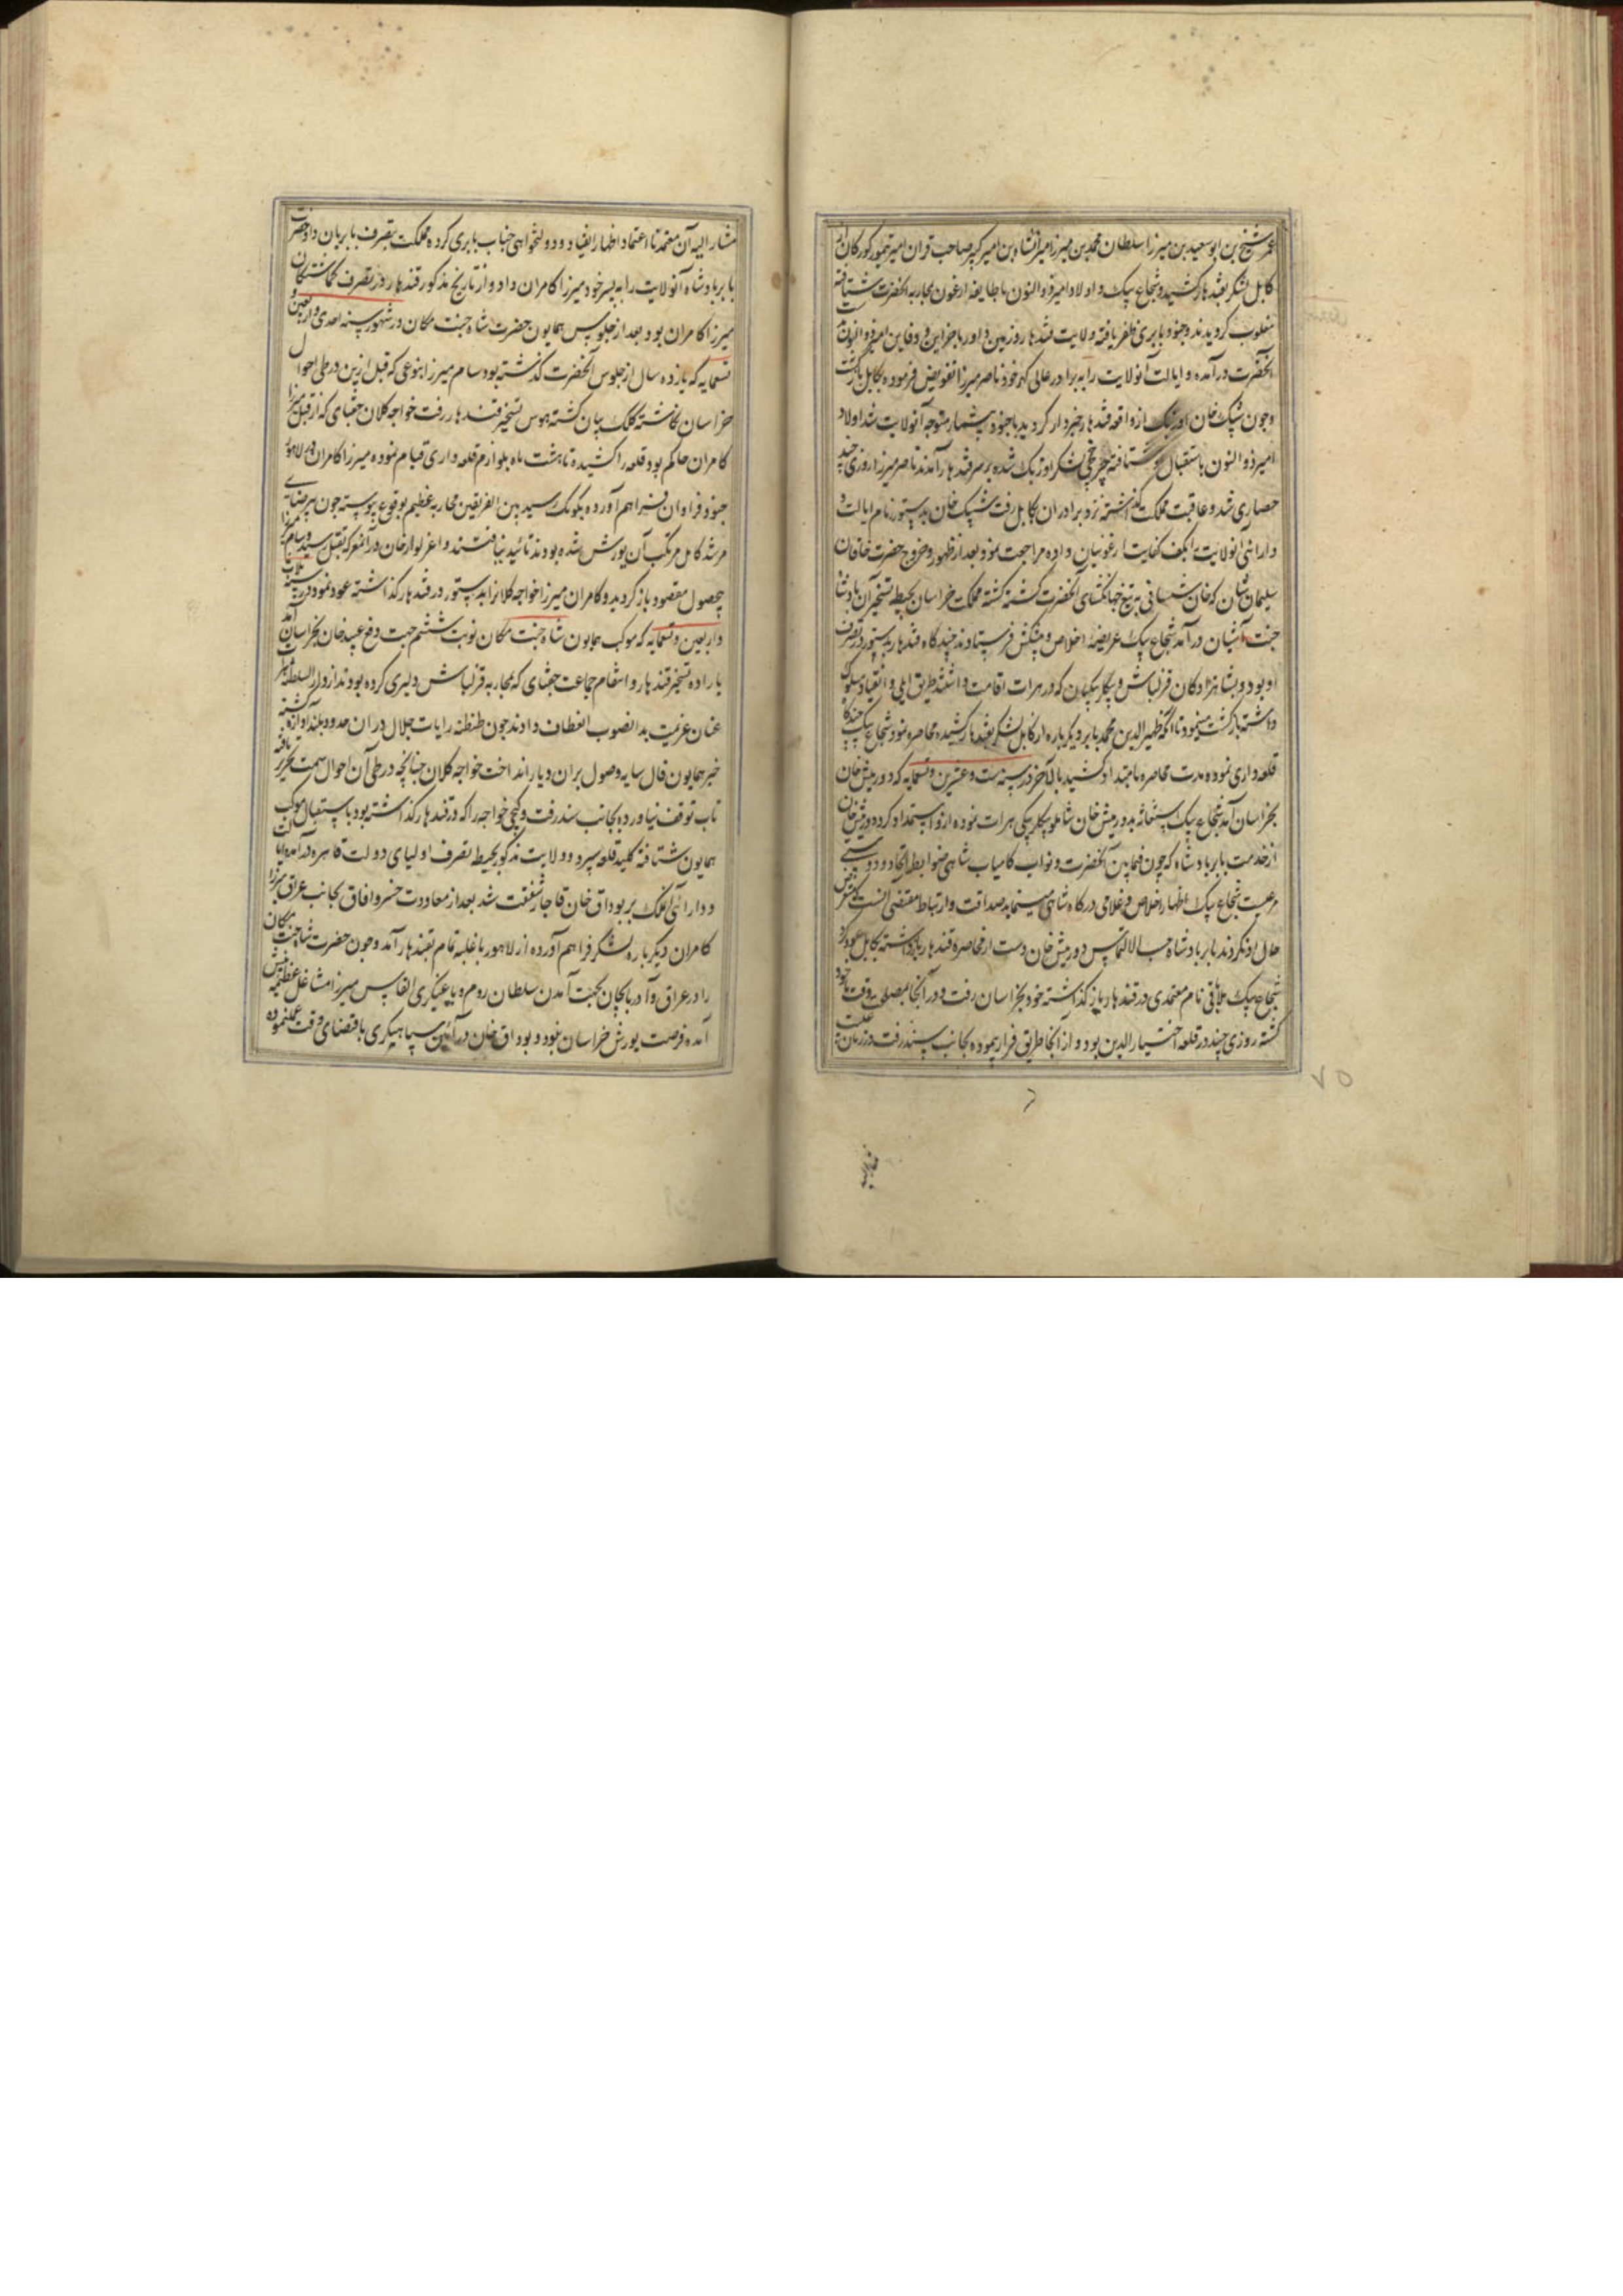 عمر شیخ بن ابوسعید بن میرزا سلطان محمد بن میرزا میرانشاه بن امیر کبیر صاحب قران امیر تیمور کورکان از
کابل لشکر بقندهار کشید و شجاع بیک و اولاد امیر ذوالنون با طایفه ارغون بمحاربه آنحضرت شتافته
مغلوب کردیدند و جنود بابری ظفر یافته ولایت قندهار و زمین داور با خزاین و دفاین امیر ذوالنون بدست
آنحضرت درآمده و ایالت آنولایت را به برادر عالی کهر خود ناصر میرزا تفویض فرموده بکابل بازکشت
و چون شیبک خان اوزبک از واقعه قندهار خبردار کردید با جنود بیشمار متوجه آنولایت شد اولاد
امیر ذوالنون باستقبال او شتافته چرخچی لشکر اوزبک شده بر سر قندهار آمدند ناصر میرزا روزی چند
حصاری شد و عاقبت مملکت کذاشته نزد برادران بکابل رفت شیبک خان بدستور نام ایالت و
دارائی آنولایت بکف کفایت ارغونیان داده مراجعت نمود بعد از ظهور و خروج حضرت خاقان
سلیمان شان که خان شیبانی به تیغ جهانکشای آنحضرت کشته کشته مملکت خراسان بحیطه تسخیر آن پادشاه
جنت آشیان درآمد شجاع بیک عریضه اخلاص و پیشکش فرستاد و چندکاه قندهار بدستور در تصرف
او بود و بشاهزادکان قزلباش و بیکلربیکیان که در هرات اقامت داشتند طریق ایلی و انقیاد سلوک
داشته بازکشت مینمود تا آنکه ظهیرالدین محمد بابر دیکرباره از کابل لشکر بقندهار کشیده محاصره نمود شجاع بیک چندکاه
قلعه داری نموده مدت محاصره بامتداد کشید بالاخر در سنه ست و عشرین و تسعمایه که دورمیش خان
بخراسان آمد شجاع بیک استغاثه بدورمیش خان شاملو بیکلربیکی هرات نموده ازو استمداد کرده دورمیش خان
از خدمت بابر پادشاه که چون فیمابین آنحضرت و نواب کامیاب شاهی ضوابط اتحاد و دوستی
مرعیست شجاع بیک اظهار اخلاص و غلامی درکاه شاهی مینماید صداقت و ارتباط مقتضی آنست که متعرض
حال او نکردند بابر پادشاه حسب الالتماس دورمیش خان دست از محاصره قندهار بازداشته بکابل عود کرد
شجاع بیک ملاباقی نام معتمدی در قندهار باز کذاشته خود بخراسان رفت و در آنجا بمصلحت وقت
کشته روزی چند در قلعه اختیارالدین بود و از آنجا طریق فرار پیموده بجانب سند رفت و در زمان غیبت
مشارالیه آن معتمد نا اعتماد اظهار انقیاد و دولتخواهی جناب بابری کرده مملکت بتصرف بابریان داد حضرت
بابر پادشاه آنولایت را به پسر خود میرزا کامران داد و از تاریخ مذکور قندهار در تصرف کماشتکان
میرزا کامران بود بعد از جلوس همایون حضرت شاه جنت مکان در شهور سنه احدی و اربعین و
تسعمایه که یازده سال از جلوس آنحضرت کذشته بود سام میرزا بنوعی که قبل ازین در طی احوال
خراسان نکاشته کلک بیان کشته بهوس تسخیر قندهار رفت خواجه کلان جغتای که از قبل میرزا
کامران حاکم بود قلعه را کشیده تا هشت ماه بلوازم قلعه داری قیام نموده میرزا کامران از لاهور
جنود فراوان فراهم آورده بکومک رسید بین الفریقین محاربه عظیم بوقوع پیوسته چون بی رضای
مرشد کامل مرتکب آن یورش شده بودند تائید نیافتند و اغزیوار خان در آنمعرکه بقتل رسید و سام میرزا
بی حصول مقصود باز کردید و کامران میرزا خواجه کلان را بدستور در قندهار کذاشته عود نمود در سنه ثلاث
و اربعین و تسعمایه که موکب همایون شاه جنت مکان نوبت ششم جهت دفع عبید خان بخراسان آمد
باراده تسخیر قندهار و انتقام جماعت جغتای که محاربه قزلباش دلیری کرده بودند از دارالسلطنه هرات
عنان عزیمت بدانصوب انعطاف دادند چون طنطنه رایات جلال در آن حدود بلند آوازه کشته
خبر همایون فال سایه وصول بران دیار انداخت خواجه کلان چنانچه در طی آن احوال سمت تحریر یافته
تاب توقف نیاورده بجانب سند رفت و کچی خواجه را که در قندهار کذاشته بود باستقبال موکب
همایون شتافته کلید قلعه سپرد و ولایت مذکور بحیطه تصرف اولیای دولت قاهره درآمده ایالت
و دارائی آنملک ببوداق خان قاجار شفقت شد بعد از معاودت خسرو آفاق بجانب عراق میرزا
کامران دیکرباره لشکر فراهم آورده از لاهور با غلبه تمام بقندهار آمد و چون حضرت شاه جنت مکان
را در عراق و آذربایجان بجهت آمدن سلطان روم و یاغیکری القاس میرزا مشاغل عظیمه پیش
آمده فرصت یورش خراسان نبود و بوداق خان در آئین سپاهیکری باقتضای وقت عمل نموده